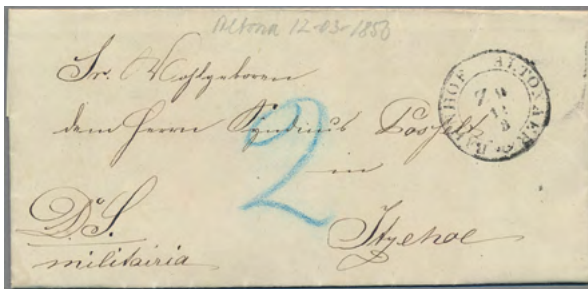 Altona 12-03-1850
ALTONAER BAHNHOF
9 U
12
3
Sr. Wohlgeboren
dem Herrn Syndicus
in
2
Itzehoe
D. S.
militairia